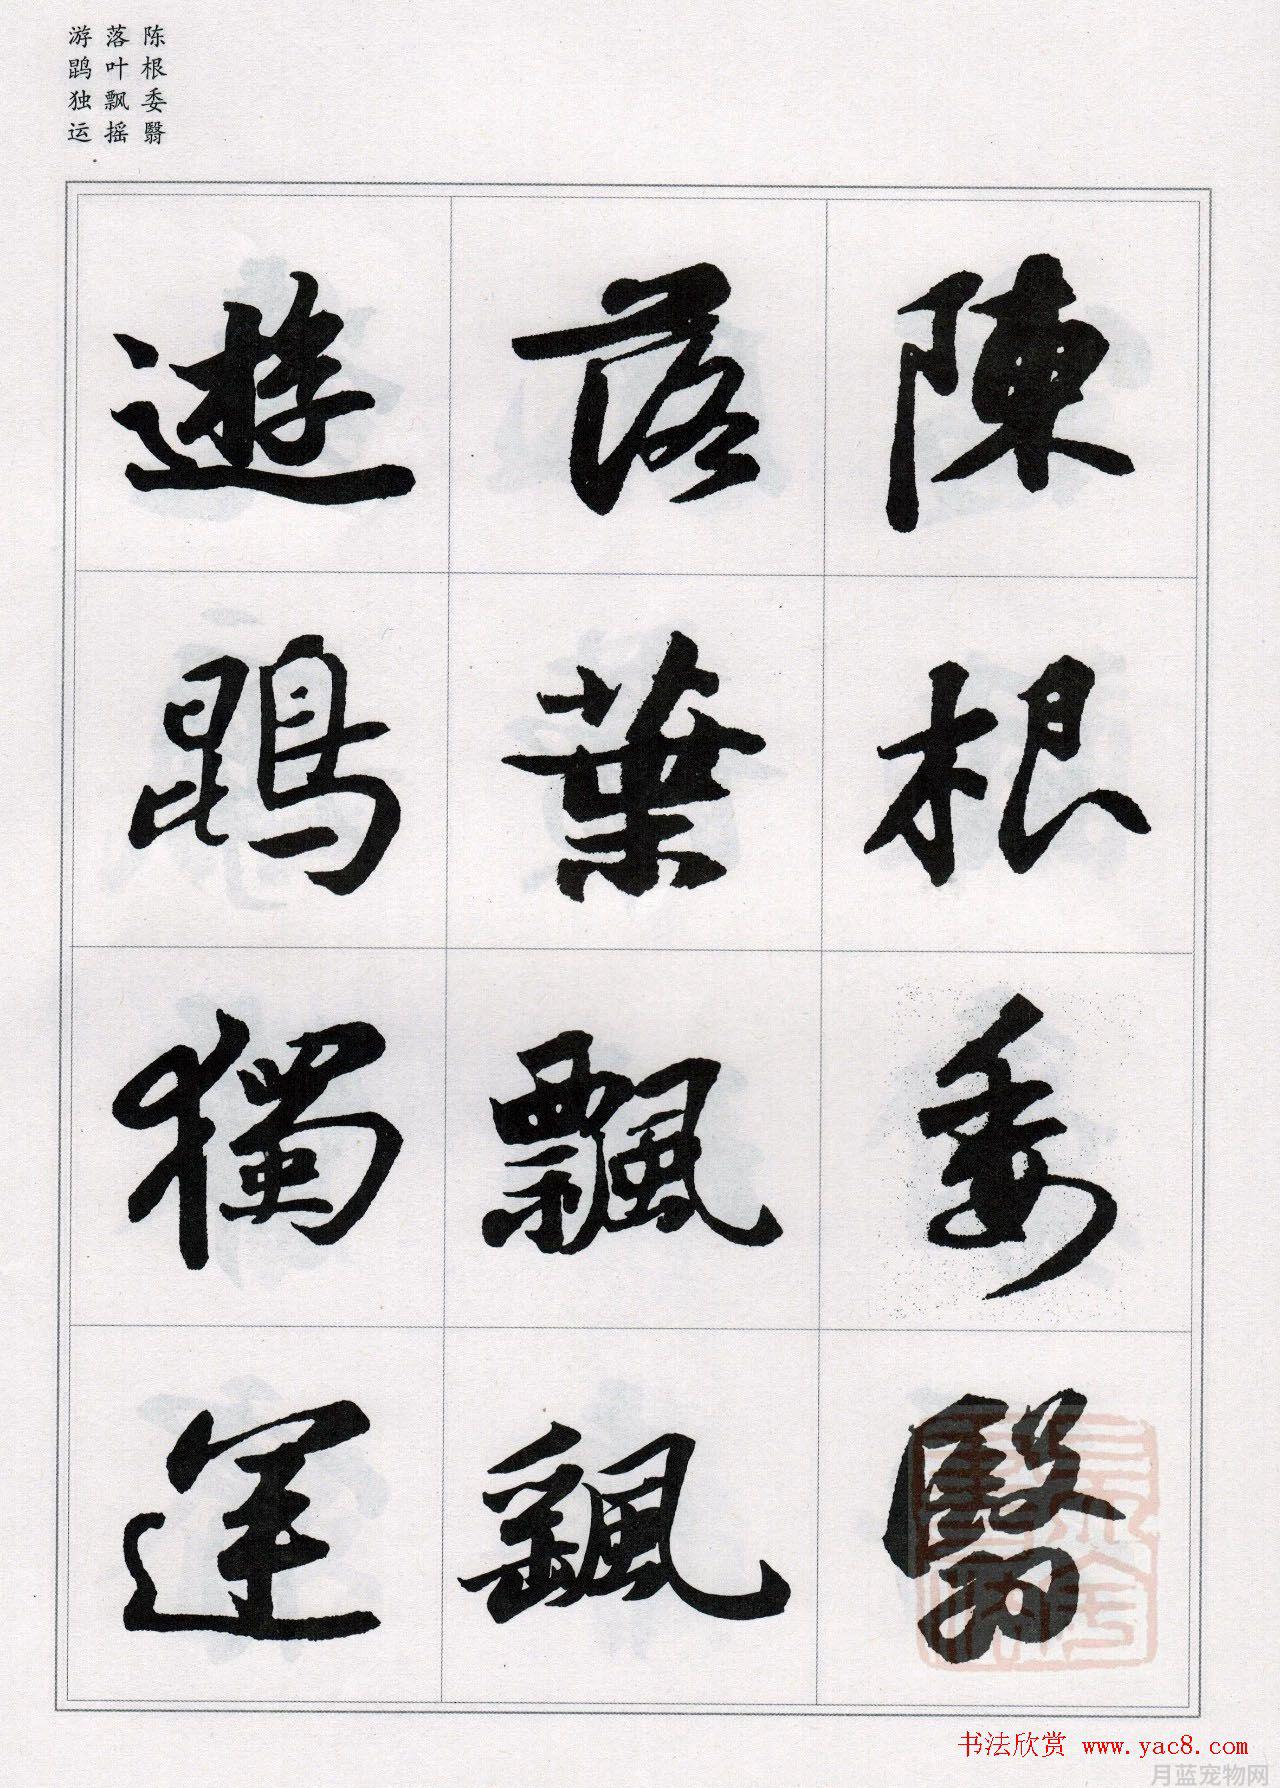 陈根委翳
落叶飘摇
游鹍独运
陳根委翳
落葉飄颻
遊鵾獨運
书法欣赏 www.yac8.com
月蓝宠物网